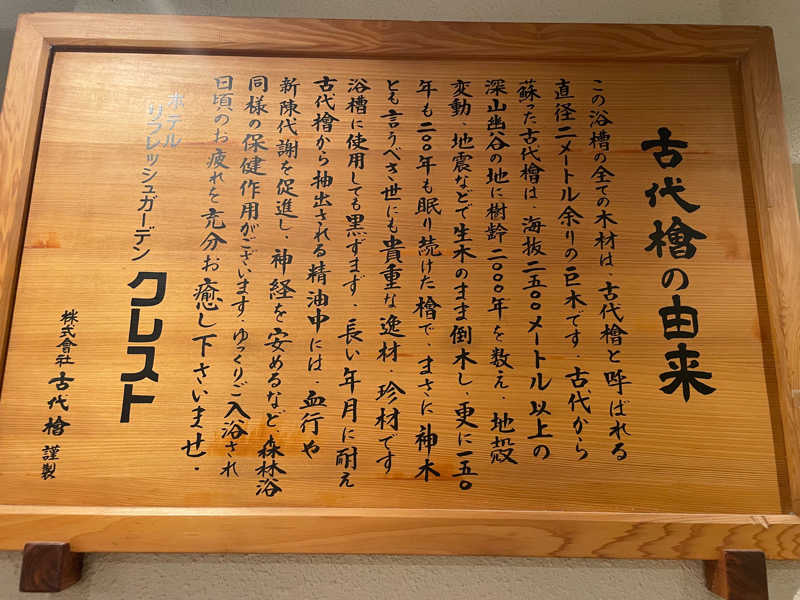 古代檜の由来
この浴槽の全ての木材は、古代檜と呼ばれる
直径二メートル余りの巨木です。古代から
蘇った古代檜は、海抜二五〇〇メートル以上の
深山幽谷の地に樹齢二〇〇〇年を数え、地殻
変動、地震などで生木のまま倒木し、更に一五〇
年も二〇〇年も眠り続けた檜で、まさに神木
とも言うべき世にも貴重な逸材・珍材です
浴槽に使用しても黒ずまず、長い年月に耐え
古代檜から抽出される精油中には、血行や
新陳代謝を促進し、神経を安めるなど、森林浴
同様の保健作用がございます。ゆっくりご入浴され
日頃のお疲れを充分お癒し下さいませ。
ホテル
リフレッシュガーデン クレスト
株式會社 古代檜 謹製